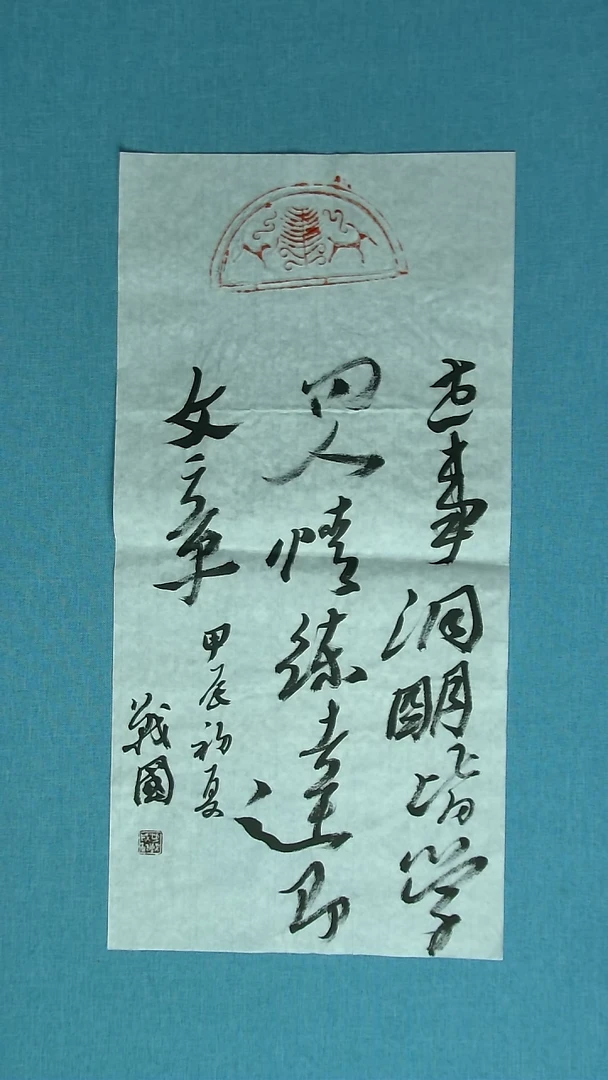 世事洞明皆学
问人情練達即
文章
甲辰初夏
戰國